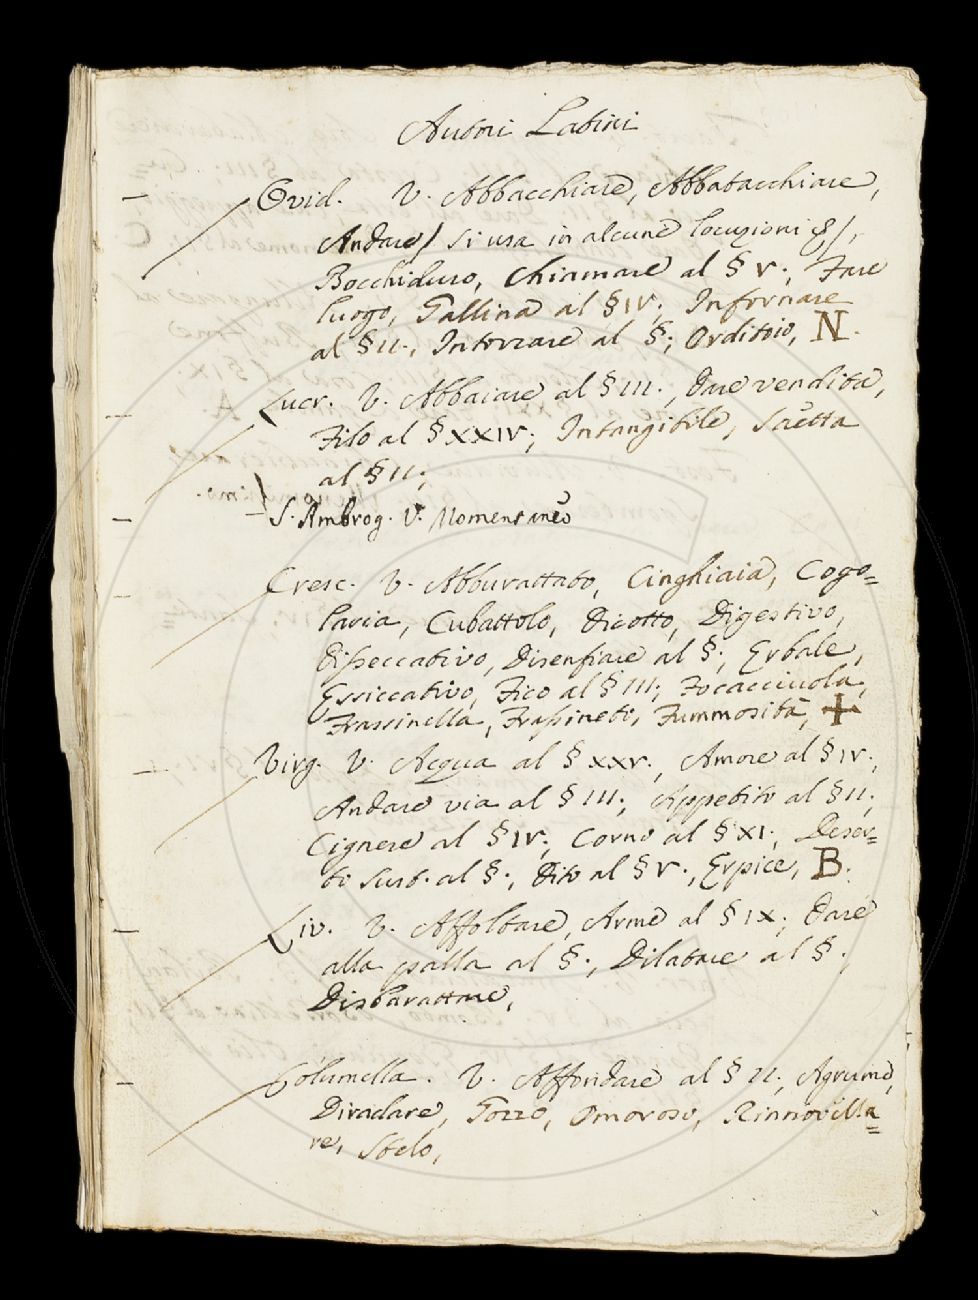 Autori Latini
Ovid. V. Abbacchiare, Abbatacchiare,
Andare / si usa in alcune locuzioni &/,
Bocchiduro, Chiamare al § V.; Fare
luogo, Gallina al § IV; Infornare
al § II., Intorzare al §; Orditoio, N.
Lucr. V. Abbaiare al § III., Dare vendita,
Filo al § XXIV; Intangibile, Saetta
al § II;
S. Ambrog. V. Momentaneo
Cresc. V. Abburattato, Cinghiaia, Cogo=
laria, Cubattolo, Dicotto, Digestivo,
Disseccativo, Disenfiare al §; Erbale,
Essiccativo, Fico al § III; Focacciuola,
Frassinella, Frassineto, Fummosità, +
Virg. V. Acqua al § XXV., Amore al § IV.,
Andare via al § III; Appetito al § II;
Cignere al § IV; Corno al § XI; Deser=
to sust. al §., Dito al § V., Erpice, B.
Liv. V. Affoltare, Arme al § IX; Dare
alla palla al §., Dilatare al §.,
Disbarattare,
Columella. V. Affondare al § II; Agrume,
Diradare, Gozzo, Omoroso, Rinnovella=
re, Stelo,